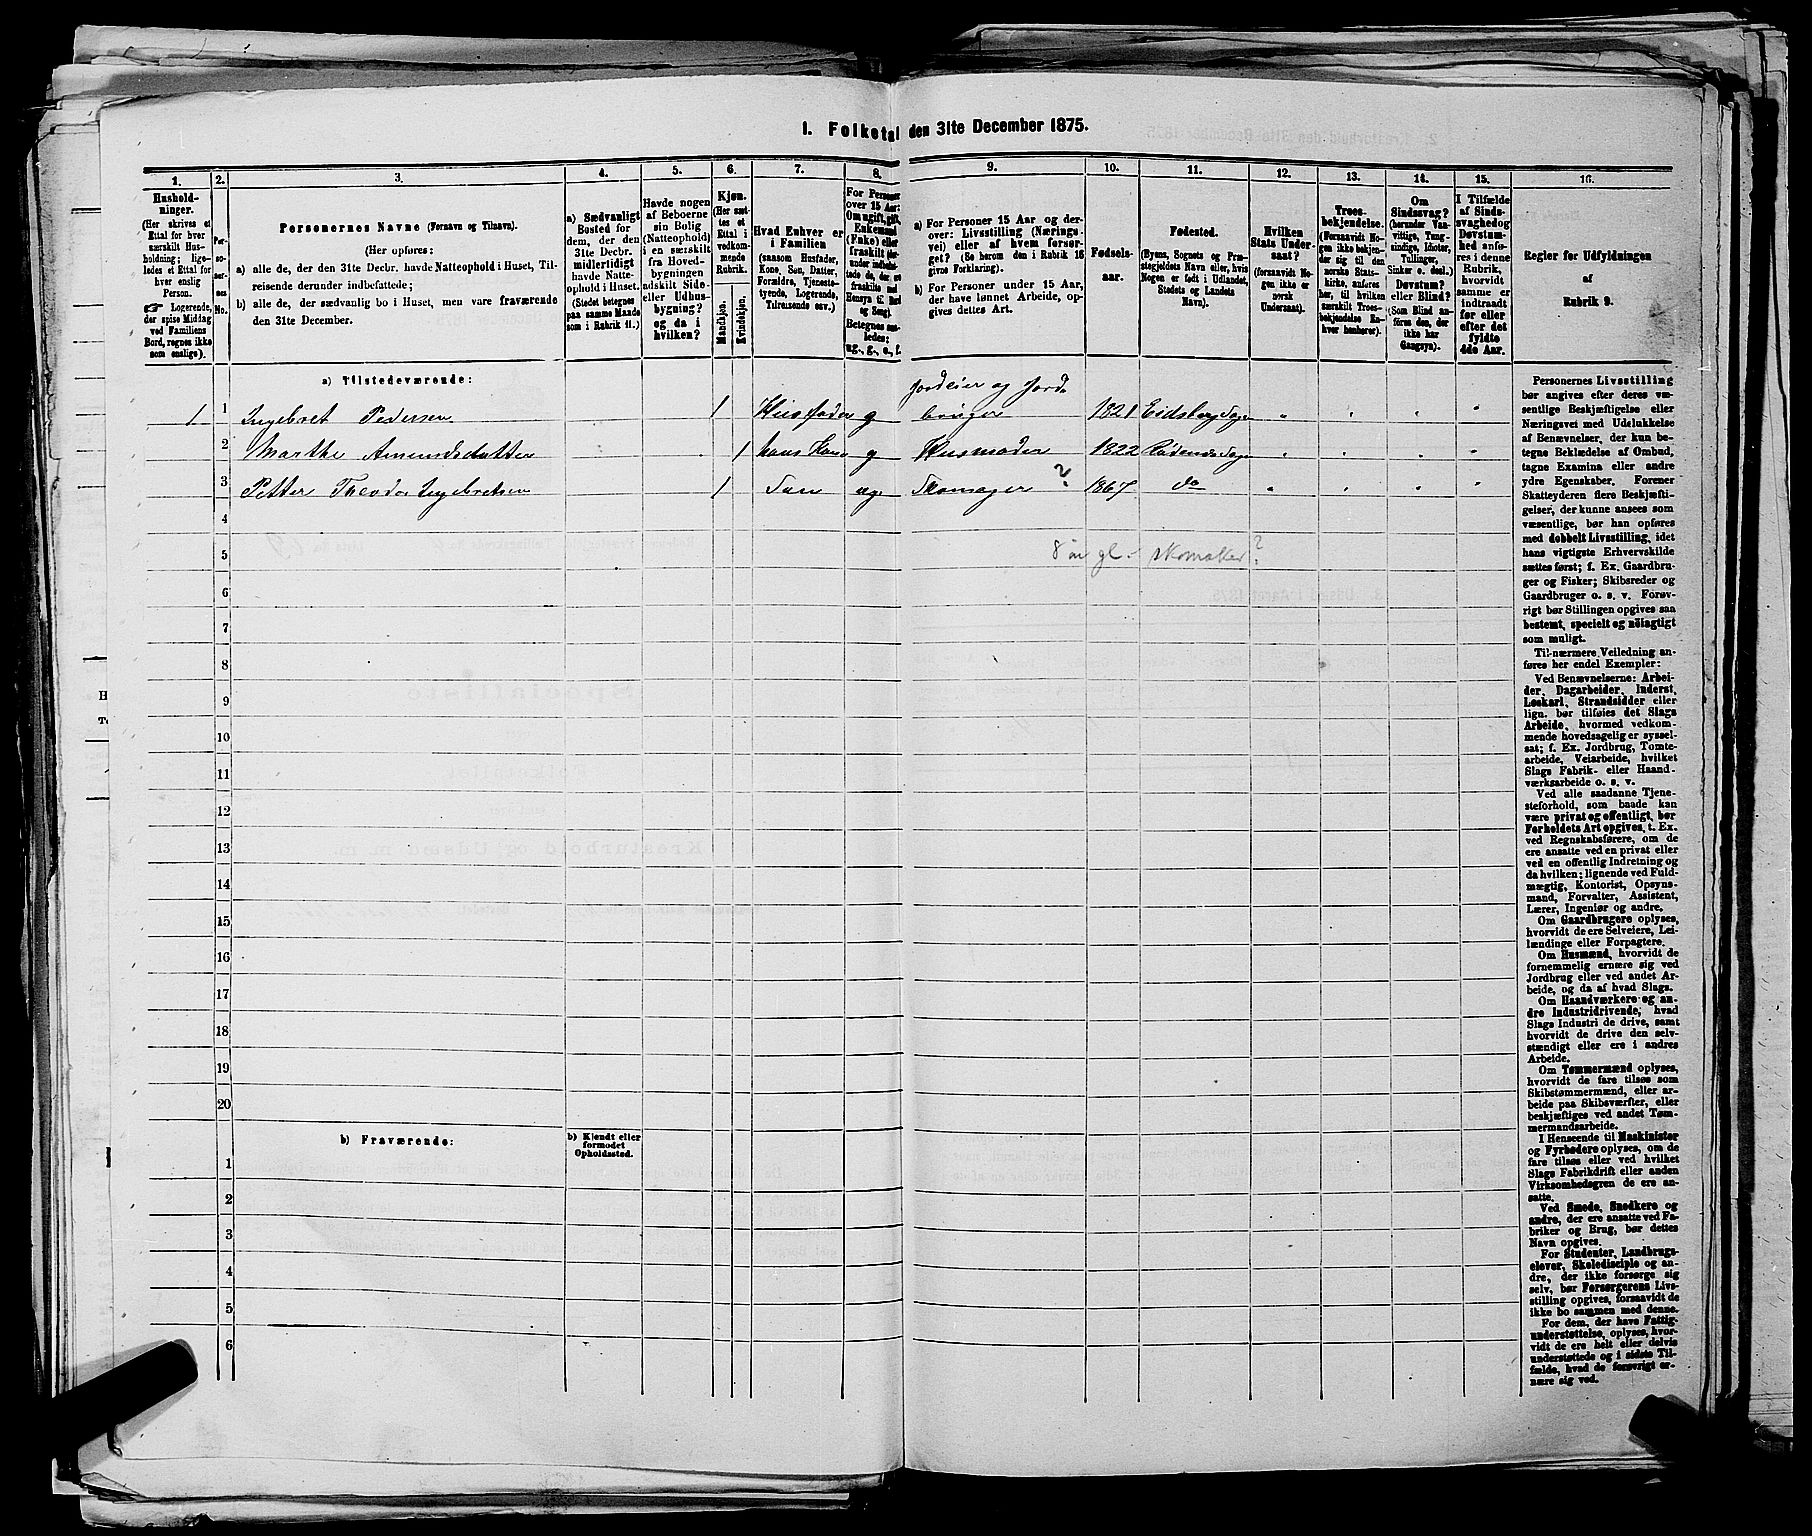 1. Folketal den 31te December 1875.
1. 2. 3. 4. 5. 6. 7. 8. 9. 10. 11. 12. 13. 14. 15. 16.
Hushold-
ninger.
(Her skrives et
Ettal for hver
særskilt Hus-
holdning; lige-
ledes et Ettal for
hver enslig
Person.
☞ Logerende,
der spise Middag
ved Familiens
Bord, regnes ikke
som enslige).
Per-
soner-
nes
No.
Personernes Navne (Fornavn og Tilnavn).
(Her opføres:
a) alle de, der den 31te Decbr. havde Natteophold i Huset, Til-
reisende derunder indbefattede;
b) alle de, der sædvanlig bo i Huset, men vare fraværende
den 31te December.
a) Sædvanligt
Bosted for
dem, der den
31te Decbr.
midlertidigt
havde Natte-
ophold i Huset.
(Stedet betegnes
paa samme Maade
som i Rubrik 11.)
Havde nogen
af Beboerne
sin Bolig
(Natteophold)
i en særskilt
fra Hoved-
bygningen
adskilt Side-
eller Udhus-
bygning?
og da i
hvilken?
Kjøn.
(Her sæt-
tes et
Ettal i
vedkom-
mende
Rubrik.
Mandkjøn.
Kvindekjøn.
Hvad Enhver er
i Familien
(saasom Husfader,
Kone, Søn, Datter,
Forældre, Tjeneste-
tyende, Logerende,
Tilreisende osv.)
For Personer
over 15 Aar:
Om ugift, gift,
Enkemand
(Enke) eller
fraskilt
Betegnes saa-
ledes:
ug., g., e., f.
a) For Personer 15 Aar og der-
over: Livsstilling (Nærings-
vei) eller af hvem forsør-
get? (Se herom den i Rubrik 16
givne Forklaring).
b) For Personer under 15 Aar,
der have lønnet Arbeide, op-
gives dettes Art.
Fødsels-
aar.
Fødested.
(Byens, Sognets og Præ-
stegjeldets Navn eller, hvis
Nogen er født i Udlandet,
Stedets og Landets
Navn).
Hvilken
Stats Under-
saat?
(forsaavidt No-
gen ikke er
norsk
Undersaat).
Troes-
bekjendelse.
(Forsaavidt No-
gen ikke bekjen-
der sig til den
norske Stats-
kirke, anføres
her, til hvilken
særskilt Troes-
bekjendelse En-
hver henhører).
Om
Sindssvag?
(herunder Van-
vittige, Tung-
sindige, Idioter,
Tullinger,
Sinker o. desl.)
Døvstum?
eller Blind?
(Som Blind an-
føres den, der
ikke har
Gangsyn).
I Tilfælde
af Sinds-
svaghed og
Døvstum-
hed anfø-
res i denne
Rubrik,
hvorvidt
samme er
indtraadt
før eller
efter det
fyldte
4de Aar.
Regler for Udfyldningen
af
Rubrik 9.
a) Tilstedeværende:
1 1 Ingebret Pedersen 1 Husfader g Jordeier og Jord-
bruger 1821 Eidsberg Sogn " " " "
2 Marthe Amundsdatter 1 hans Kone g Husmoder 1822 Rødenæs Sogn " " " "
3 Petter Theodor Ingebretsen 1 Søn ug Skomager ? 1867 do " " " "
4
5 8 år gl. skomaker?
6
7
8
9
10
11
12
13
14
15
16
17
18
19
20
b) Fraværende: b) Kjendt eller
formodet
Opholdssted.
1
2
3
4
5
6
Personernes Livsstilling
bør angives efter deres væ-
sentlige Beskjæftigelse eller
Næringsvei med Udelukkelse
af Benævnelser, der kun be-
tegne Beklædelse af Ombud,
tagne Examina eller andre
ydre Egenskaber. Forener
Skatteyderen flere Beskjæfti-
gelser, der kunne ansees som
væsentlige, bør han opføres
med dobbelt Livsstilling, idet
hans vigtigste Erhvervskilde
sættes først; f. Ex. Gaardbru-
ger og Fisker; Skibsreder og
Gaardbruger o. s. v. Forøv-
rigt bør Stillingen opgives saa
bestemt, specielt og nöiagtigt
som muligt.
Til nærmere Veiledning an-
føres her endel Exempler:
Ved Benævnelserne: Arbei-
der, Dagarbeider, Inderst,
Løskarl, Strandsidder eller
lign. bør tilføies det Slags
Arbeide, hvormed vedkom-
mende hovedsagelig er syssel-
sat; f. Ex. Jordbrug, Tomte-
arbeide, Veiarbeide, hvilket
Slags Fabrik- eller Haand-
værksarbeide o. s. v.
Ved alle saadanne Tjene-
steforhold, som baade kan
være privat og offentligt, bør
Forholdets Art opgives, t. Ex.
ved Regnskabsførere, om de
ere ansatte ved en privat eller
ved en offentlig Indretning og
da hvilken; lignende ved Fuld-
mægtig, Kontorist, Opsyns-
mand, Forvalter, Assistent,
Lærer, Ingeniør og andre.
Om Gaardbrugere oplyses,
hvorvidt de ere Selveiere, Lei-
lændinge eller Forpagtere.
Om Husmænd, hvorvidt de
fornemmelig ernære sig ved
Jordbrug eller ved andet Ar-
beide, og da af hvad Slags.
Om Haandværkere og an-
dre Industridrivende, hvad
Slags Industri de drive, samt
hvorvidt de drive den selv-
stændigt eller ere i andres
Arbeide.
Om Tømmermænd oplyses,
hvorvidt de fare tilsøs som
Skibstømmermænd, eller ar-
beide paa Skibsværfter, eller
beskjæftiges ved andet Tøm-
mermandsarbeide.
I Henseende til Maskinister
og Fyrbødere oplyses, om de
fare tilsøs eller ved hvilket
Slags Fabrikdrift eller anden
Virksomhedsgren de ere an-
satte.
Ved Smede, Snedkere og
andre, der ere ansatte ved Fa-
briker og Brug, bør dettes
Navn opgives.
For Studenter, Landbrugs-
elever, Skoledisciple og an-
dre, der ikke forsørge sig
selv, bør Forsørgerens Livs-
stilling opgives, forsaavidt de
ikke bo sammen med denne.
For dem, der have Fattig-
understøttelse, oplyses, hvor-
vidt de ere helt eller delvis
understøttede og i sidste Til-
fælde, hvad de forøvrigt er-
nære sig ved.